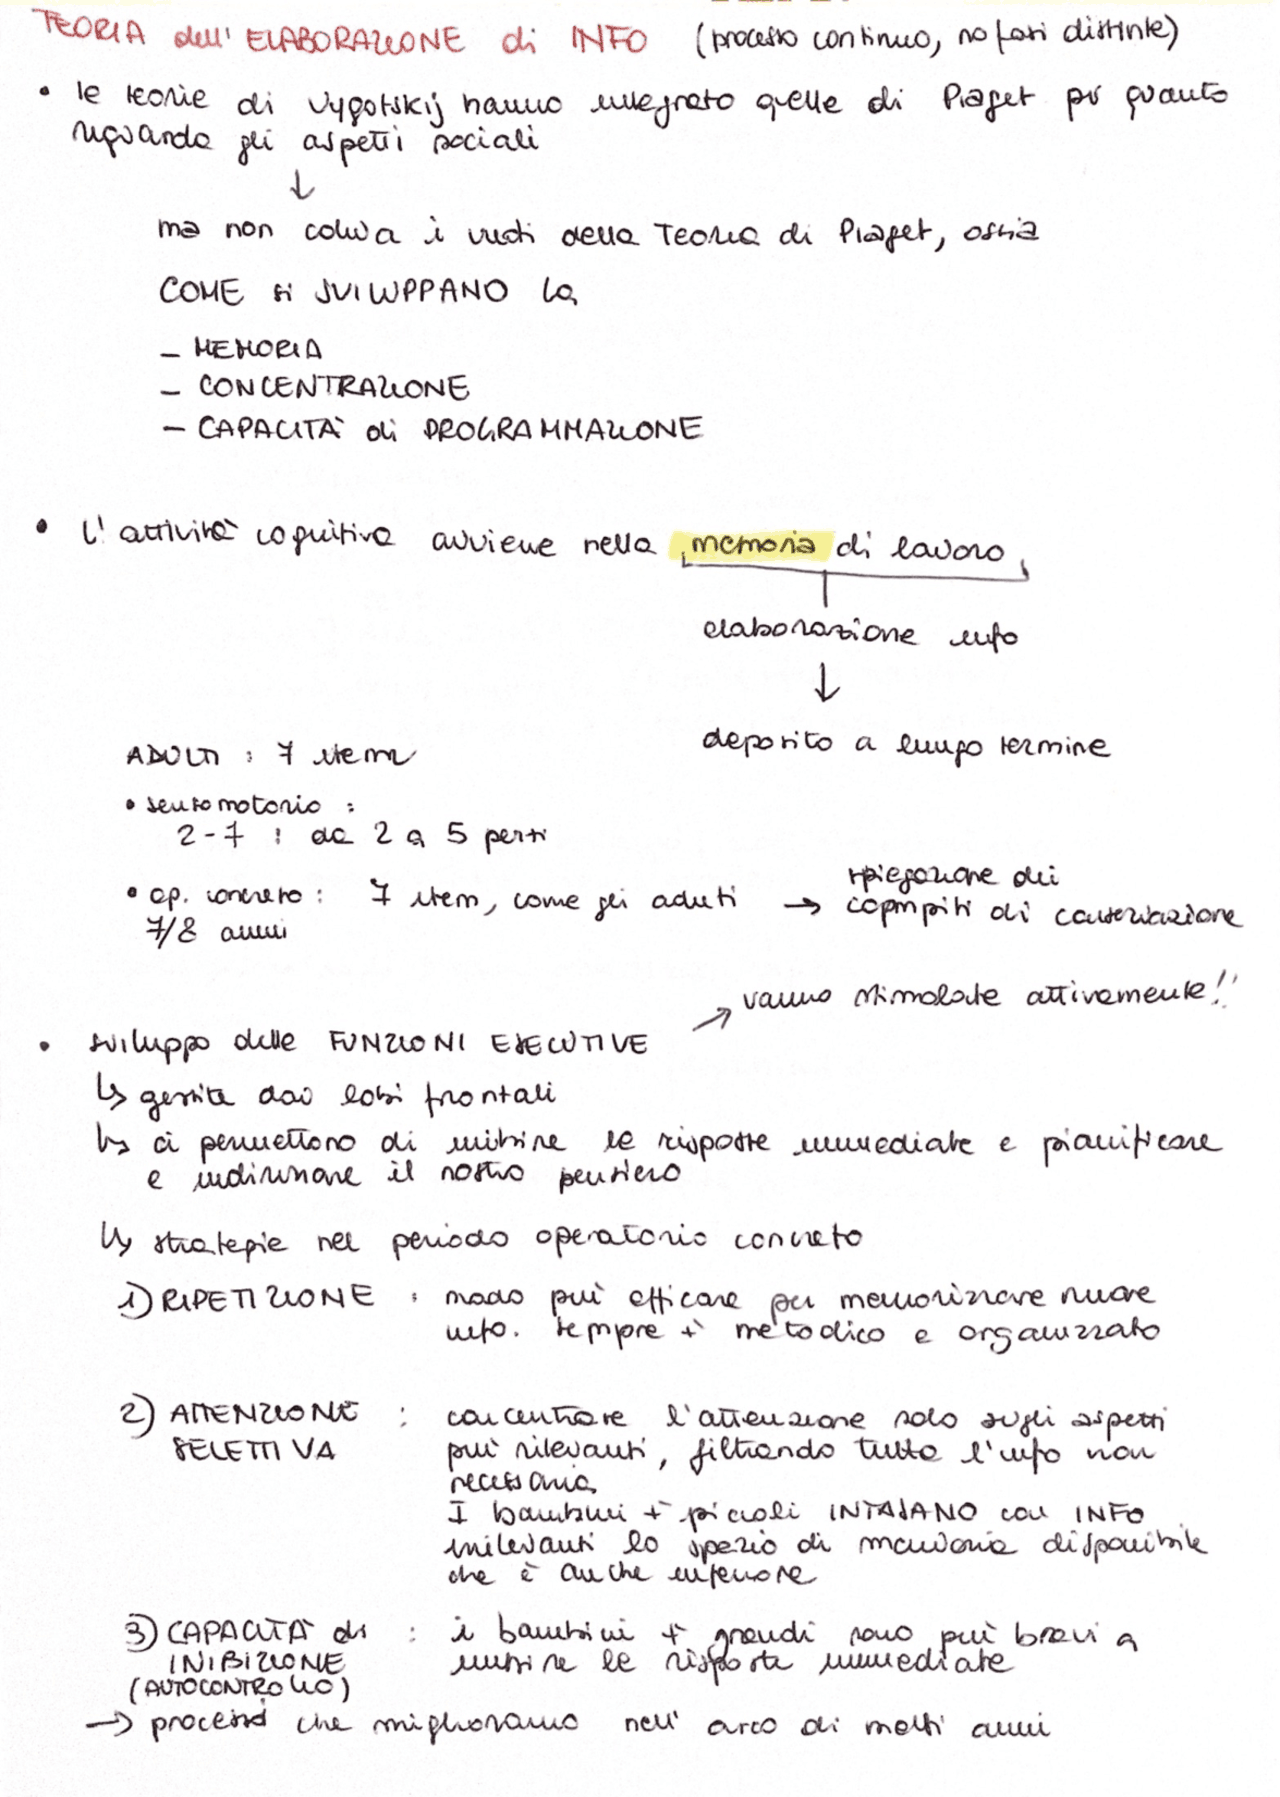 TEORIA dell' ELABORAZIONE di INFO (processo continuo, no fasi distinte)
• le teorie di Vygotskij hanno integrato quelle di Piaget per quanto
riguarda gli aspetti sociali
↓
ma non colma i vuoti della Teoria di Piaget, ossia
COME si SVILUPPANO la
- MEMORIA
- CONCENTRAZIONE
- CAPACITÀ di PROGRAMMAZIONE
• l'attività cognitiva avviene nella memoria di lavoro
elaborazione info
↓
deposito a lungo termine
ADULTI : 7 item
• sensomotorio :
2-7 : da 2 a 5 parti
• op. concreto : 7 item, come gli adulti → spiegazione dei
7/8 anni compiti di conservazione
→ vanno stimolate attivamente!!
• sviluppo delle FUNZIONI ESECUTIVE
↳ gestite dai lobi frontali
↳ ci permettono di inibire le risposte immediate e pianificare
e indirizzare il nostro pensiero
↳ strategie nel periodo operatorio concreto
1) RIPETIZIONE : modo più efficace per memorizzare nuove
info. sempre + metodico e organizzato
2) ATTENZIONE : concentrare l'attenzione solo sugli aspetti
SELETTIVA più rilevanti, filtrando tutta l'info non
necessaria
I bambini + piccoli INTASANO con INFO
irrilevanti lo spazio di memoria disponibile
che è anche inferiore
3) CAPACITÀ di : i bambini + grandi sono più bravi a
INIBIZIONE inibire le risposte immediate
(AUTOCONTROLLO)
→ processi che miglioranno nell' arco di molti anni